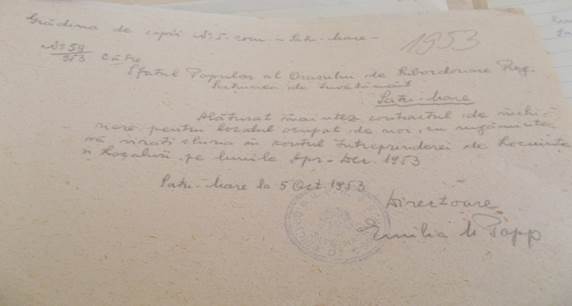 Grădina de copii No 5. rom. - Satu-Mare -
1953
No 59
953 Către
Sfatul Popular al Orasului de Subordonare Reg.
Sectiunea de Invatământ
Satu-Mare
Alăturat înaintez contractul de închi-
riere pentru localul ocupat de noi, cu rugămintea
să virati chiria în contul Intreprinderei de Locuinte
si Localuri pe lunile Apr-Dec. 1953
Satu-Mare la 5 Oct. 1953
Directoare
Emilia M Papp